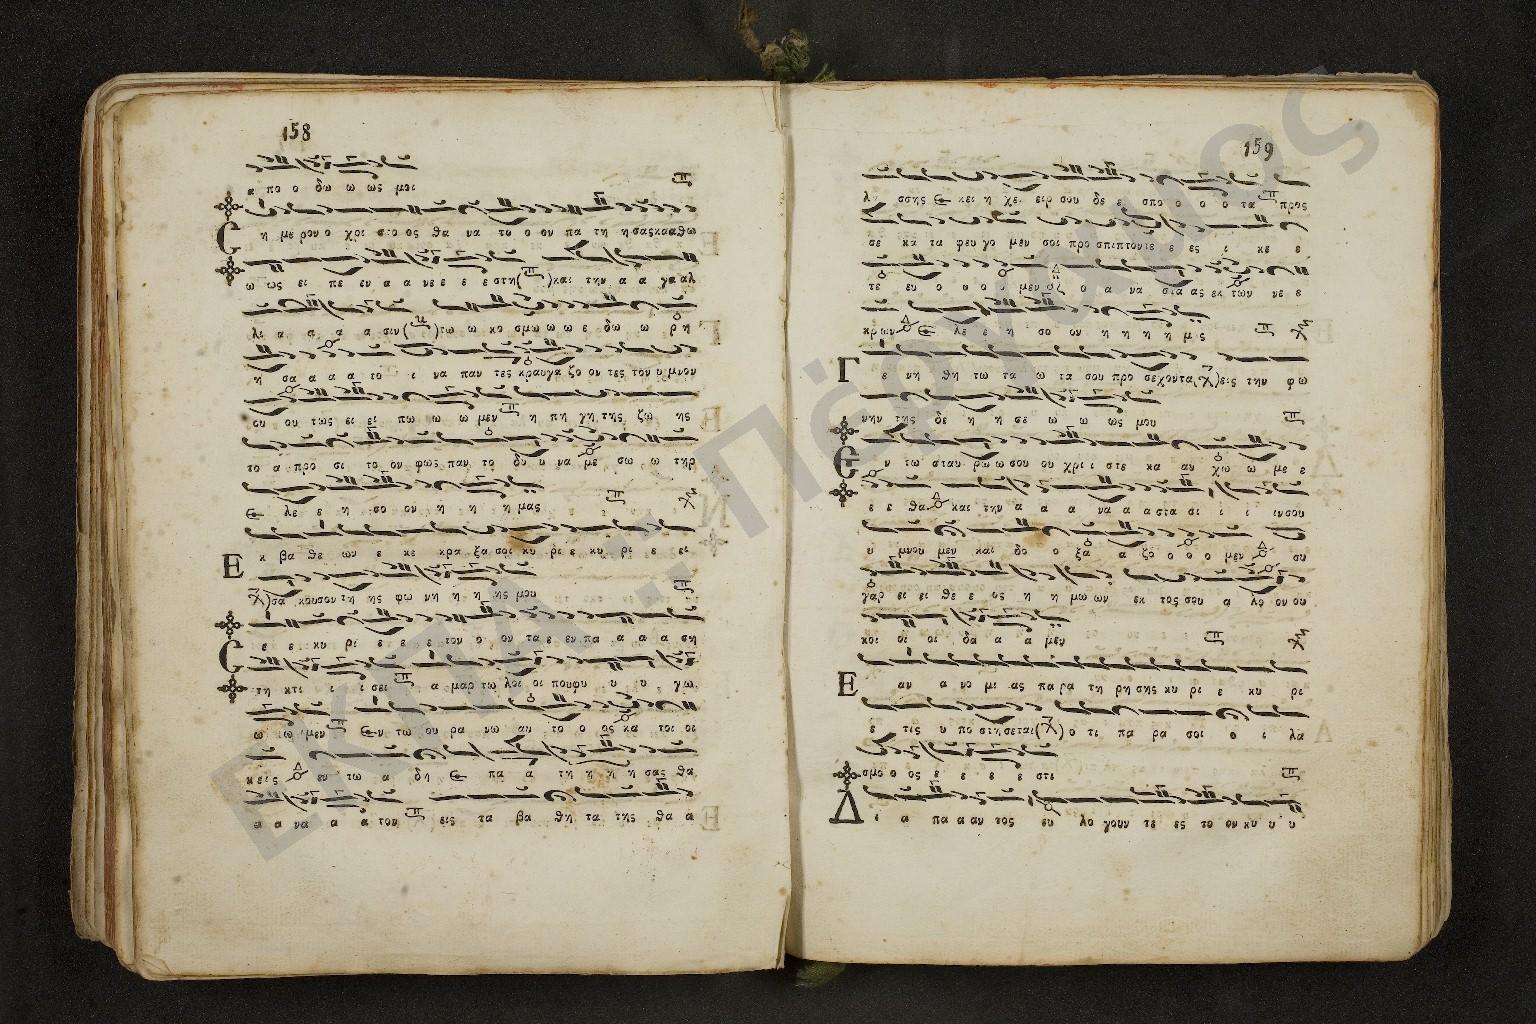 158
α πο ο δω ω ως μοι
Σ η με ρον ο χρι στο ος θα να το ο ον πα τη η σας κα αθω
ω ως ει πε εν α α νε ε ε ε στη ( ) και την α α γα αλ
λι α α α α σιν ( ) τω ω κο σμω ω ω ε δω ω ρη
η σα α α α το ι να παν τες κραυγα ζο ον τες τον υ μνον
ου ου τως ει ει πω ω ω μεν η πη γη της ζω ης
το α προ σι το ον φως παν το δυ υ να με σω ω τηρ
ε λε ε η σο ον η η η η μας
Ε κ βα θε ων ε κε κρα ξα σοι κυ ρι ε κυ ρι ε ει
σα κουσον τη ης φω νη η η ης μου
Σ ε ε κυ ρι ε ε ε ε τον ο ον τα ε εν πα α α α ση
τη κτι ι ι ι σει α μαρ τω λοι οι που φυ υ υ γω
ω ω μεν εν τω ου ρα νω αυ το ο ος κα τοι οι
κεις εν τω α δη ε πα α τη η η η σας θα
α α να α α τον εις τα βα θη τα της θα α
159
λ σσης ε κει η χει ειρ σου δε ε σπο ο ο ο τα προς
σε κα τα φευ γο μεν σοι προ σπιπτοντε ε ε ες ι κε ε
τε ευ ο ο ο ο μεν ο ο α να στα ας εκ των νε ε
κρων ε λε ε η σο ον η η η η μας
Γ ε νη θη τω τα ω τα σου προ σεχοντα ( ) εις την φω
νην της δε η η σε ω ω ως μου
Ε ν τω σταυ ρω ω σου ου χρι ι στε κα αυ χω ω με ε
ε ε θα και την α α α να α α στα σι ι ι ιν σου
υ μνου μεν και δο ο ξα α ζο ο ο ο μεν συ
γαρ ει ει θε ε ος η η μω ων εκ τος σου α λο ον ου
κοι οι οι δα α α μεν
Ε αν α νο μι ας πα ρα τη ρη σης κυ ρι ε κυ ρι
ε τις υ πο στησεται ( ) ο τι πα ρα σοι ο ι λα
σμο ο ος ε ε ε ε στι
Δ ι α πα α αν τος ευ λο γουν τε ες το ον κυ υ υ